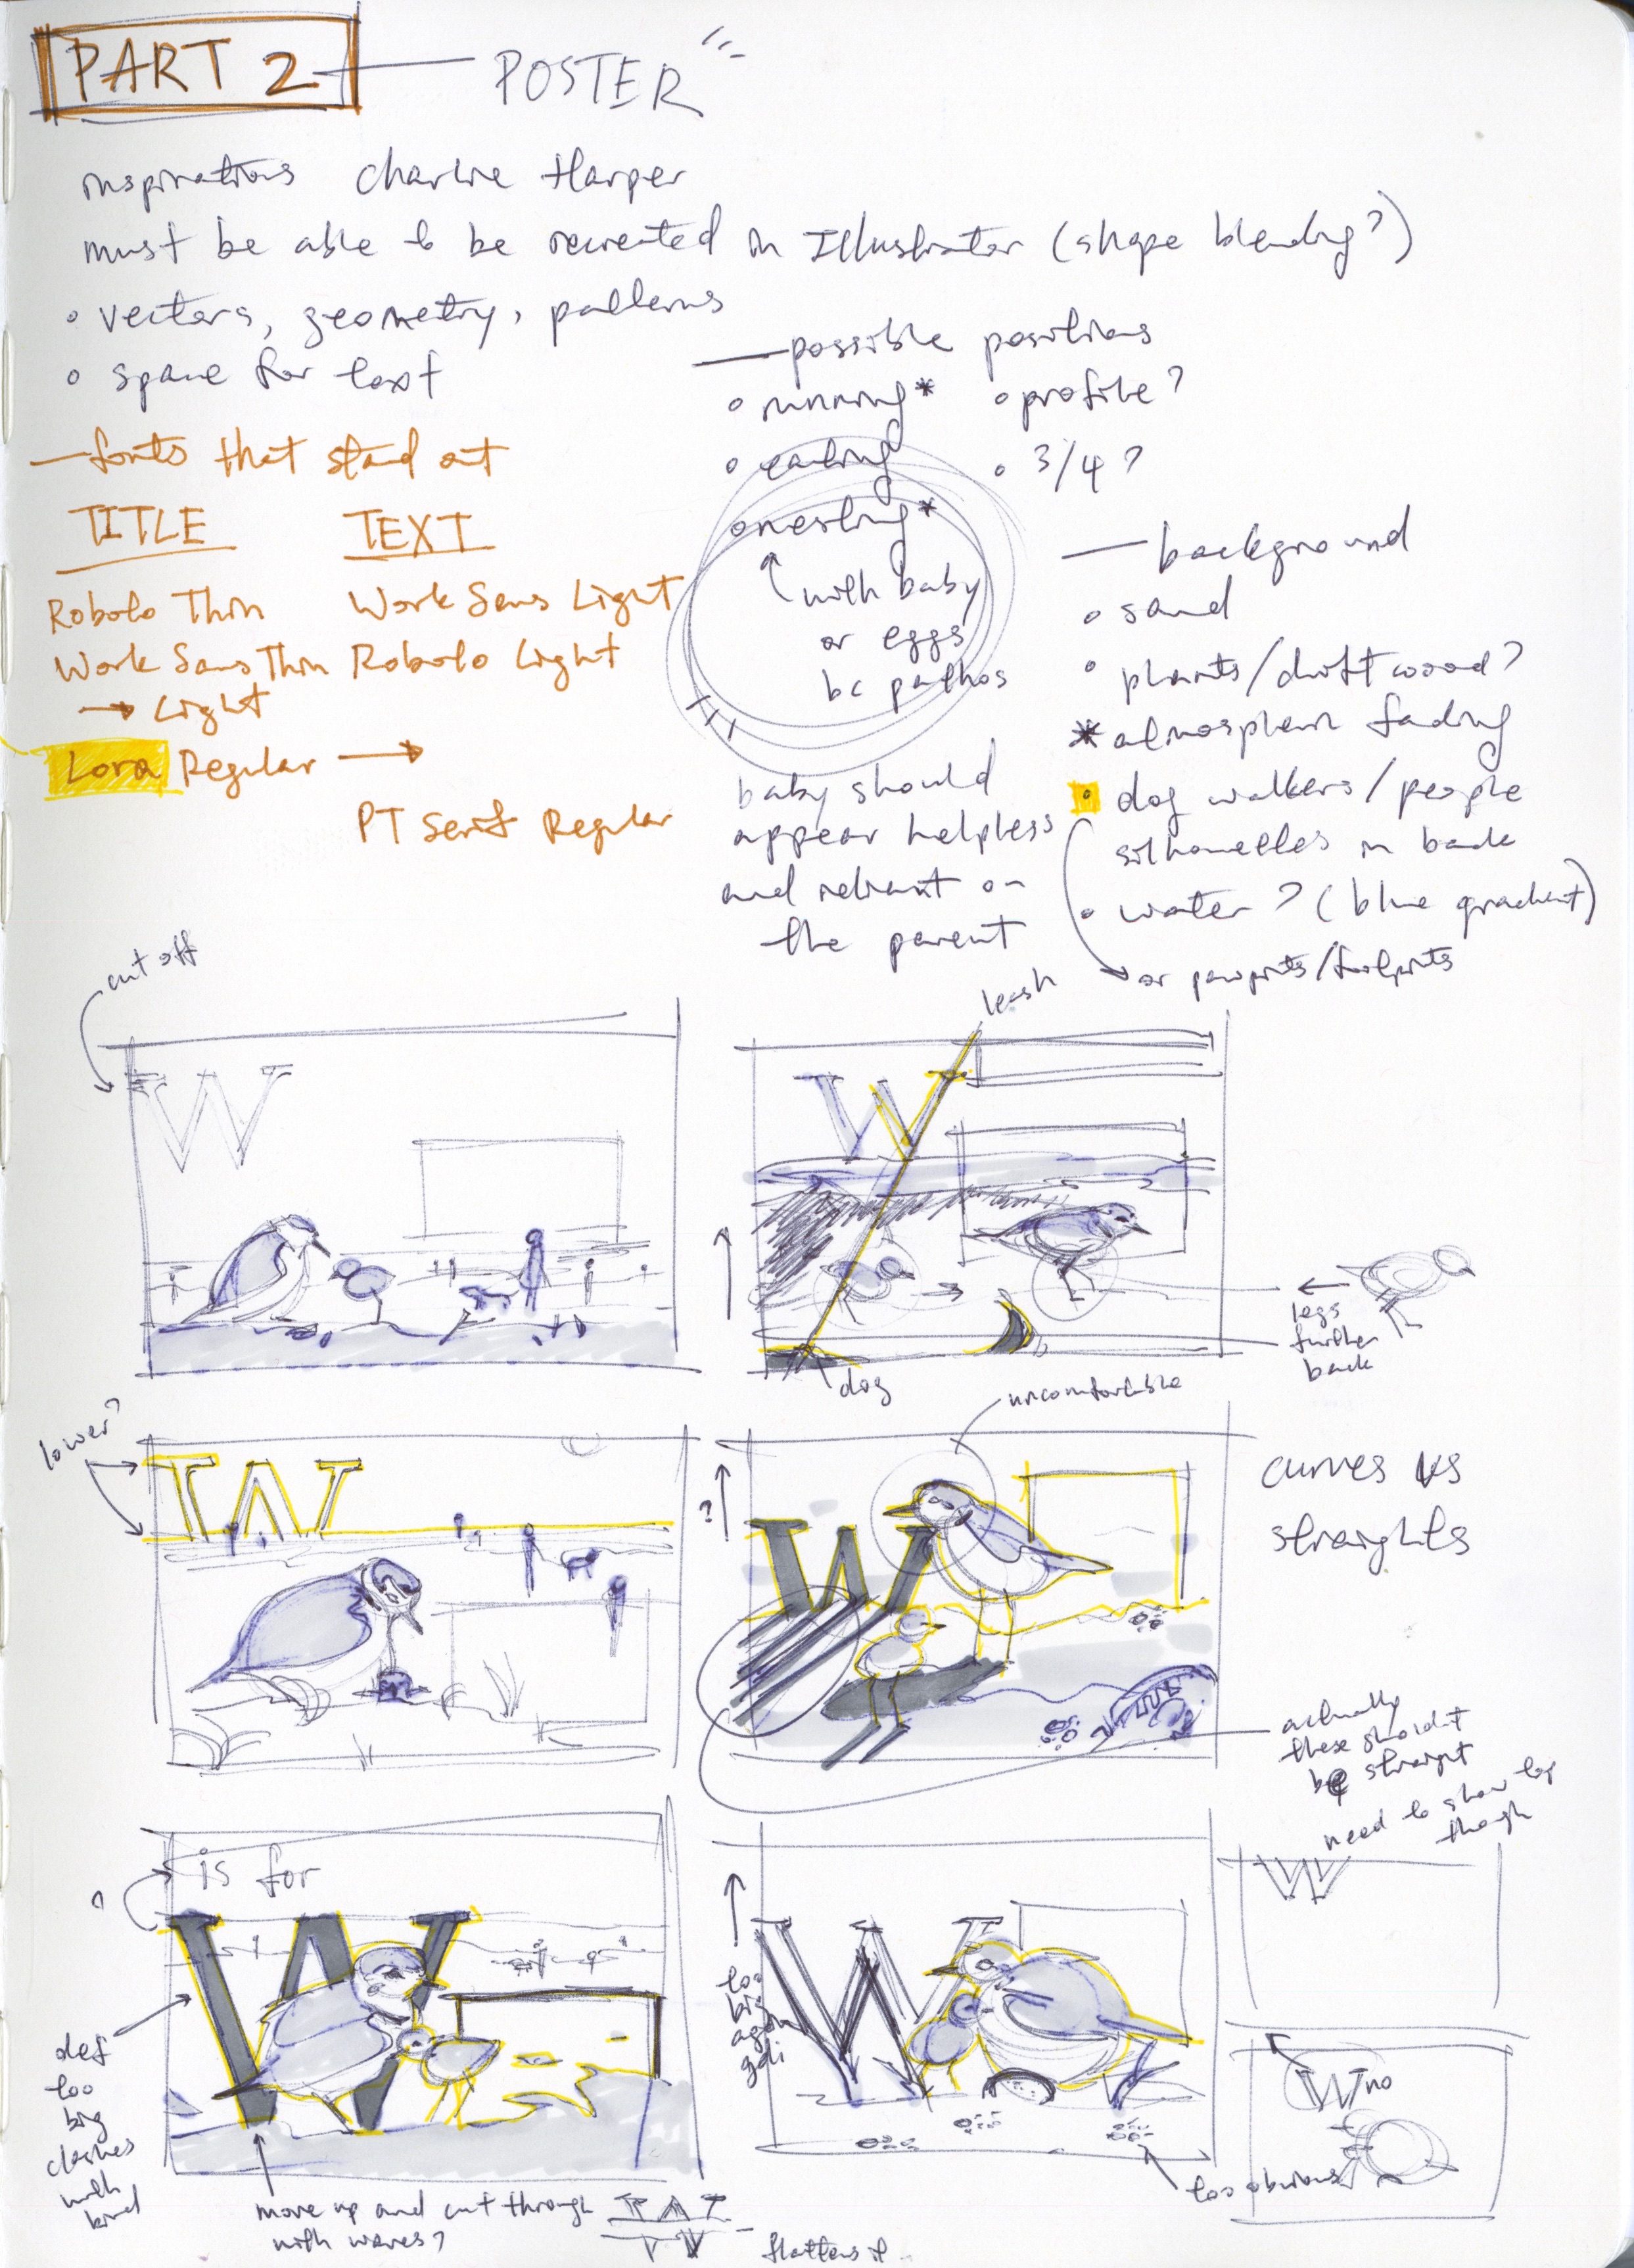 PART 2 — POSTER
inspirations Charlie Harper
must be able to be recreated in Illustrator (shape blending?)
• vectors, geometry, patterns
• space for text
— fonts that stand out
TITLE TEXT
Roboto Thin Work Sans Light
Work Sans Thin Roboto Light
→ Light
Lora Regular →
PT Serif Regular
— possible positions
• running* • profile?
• eating • 3/4?
• nesting*
with baby
or eggs
bc pathos
baby should
appear helpless
and reliant on
the parent
— background
• sand
• plants/driftwood?
* atmospheric fading
• dog walkers/people
silhouettes in back
• water? (blue gradient)
→ or pawprints/footprints
cut off
W
leash
W
dog
legs
further
back
lower?
W
uncomfortable
?
W
curves vs
straights
actually
these shouldn't
be straight
need to show top
though
is for
?
W
def
too
big
clashes
with
bird
move up and cut through
with waves?
flattens it
too
big
again
gdi
W
too obvious
W
W no